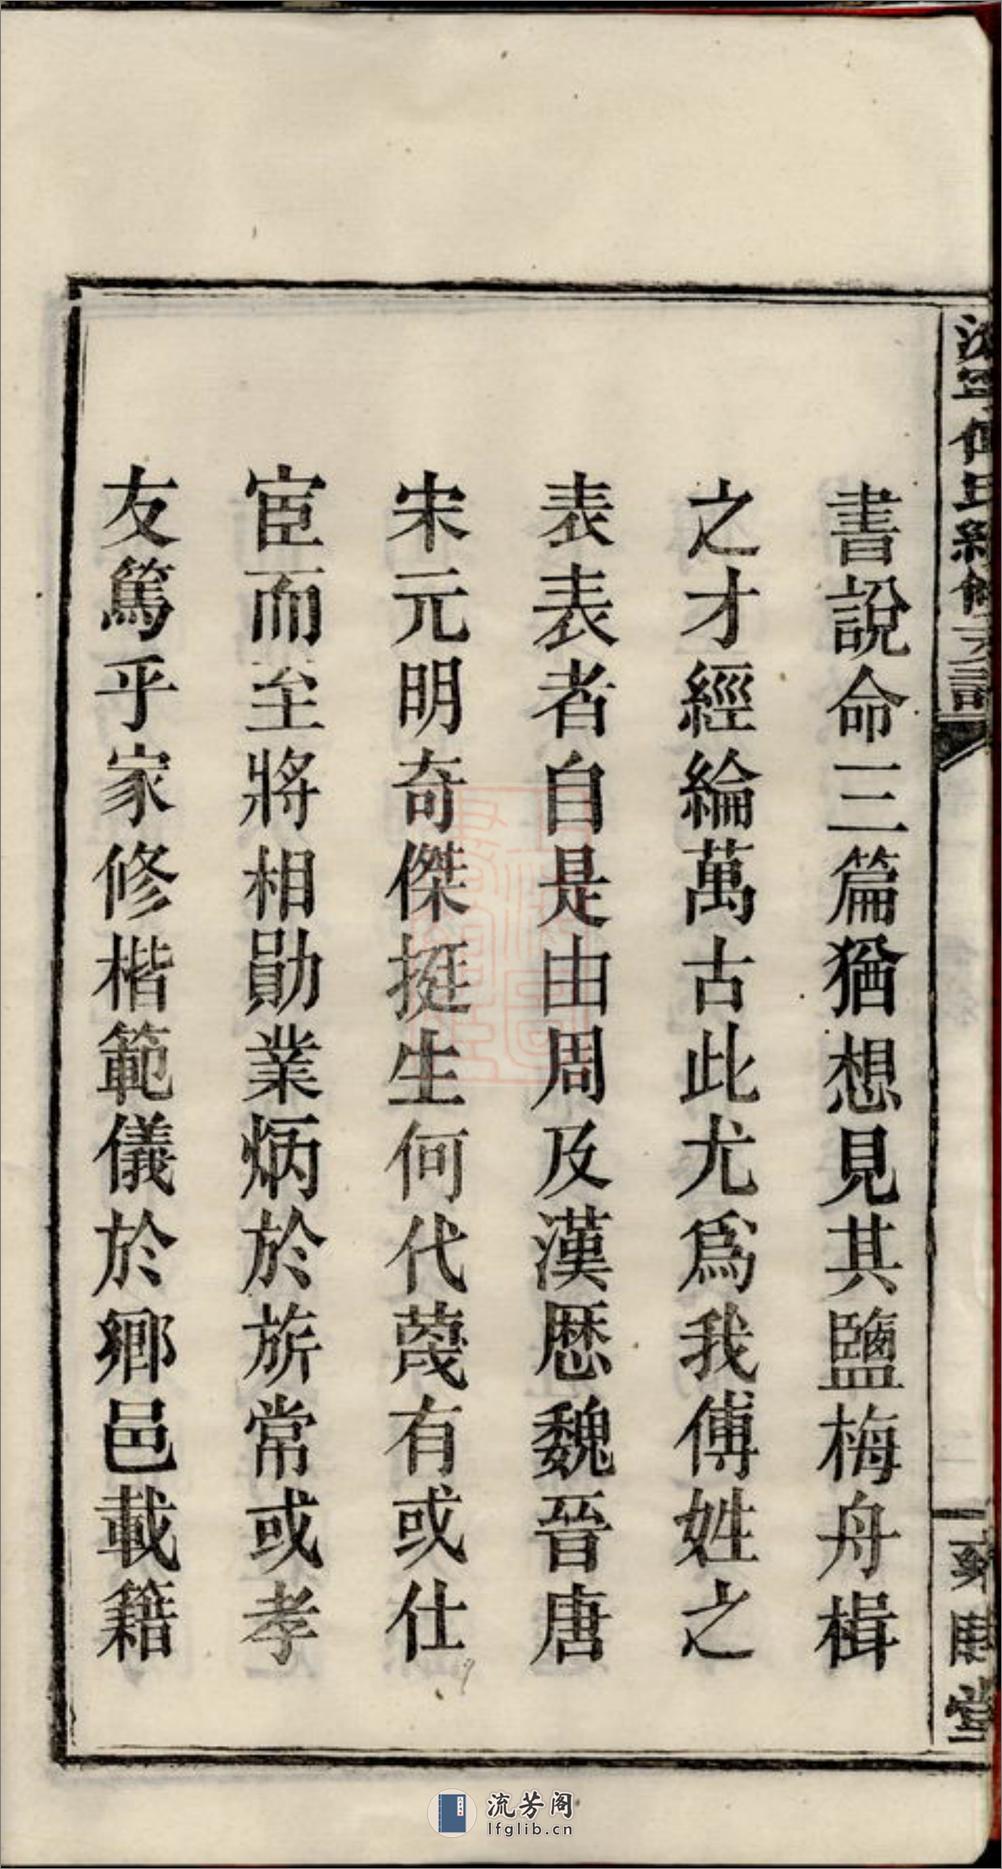 書說命三篇猶想見其鹽梅舟楫
之才經綸萬古此尤爲我傅姓之
表表者自是由周及漢歷魏晉唐
宋元明奇傑挺生何代蔑有或仕
宦而至將相勛業炳於旂常或孝
友篤乎家修楷範儀於鄉邑載籍
流芳阁
lfglib.cn